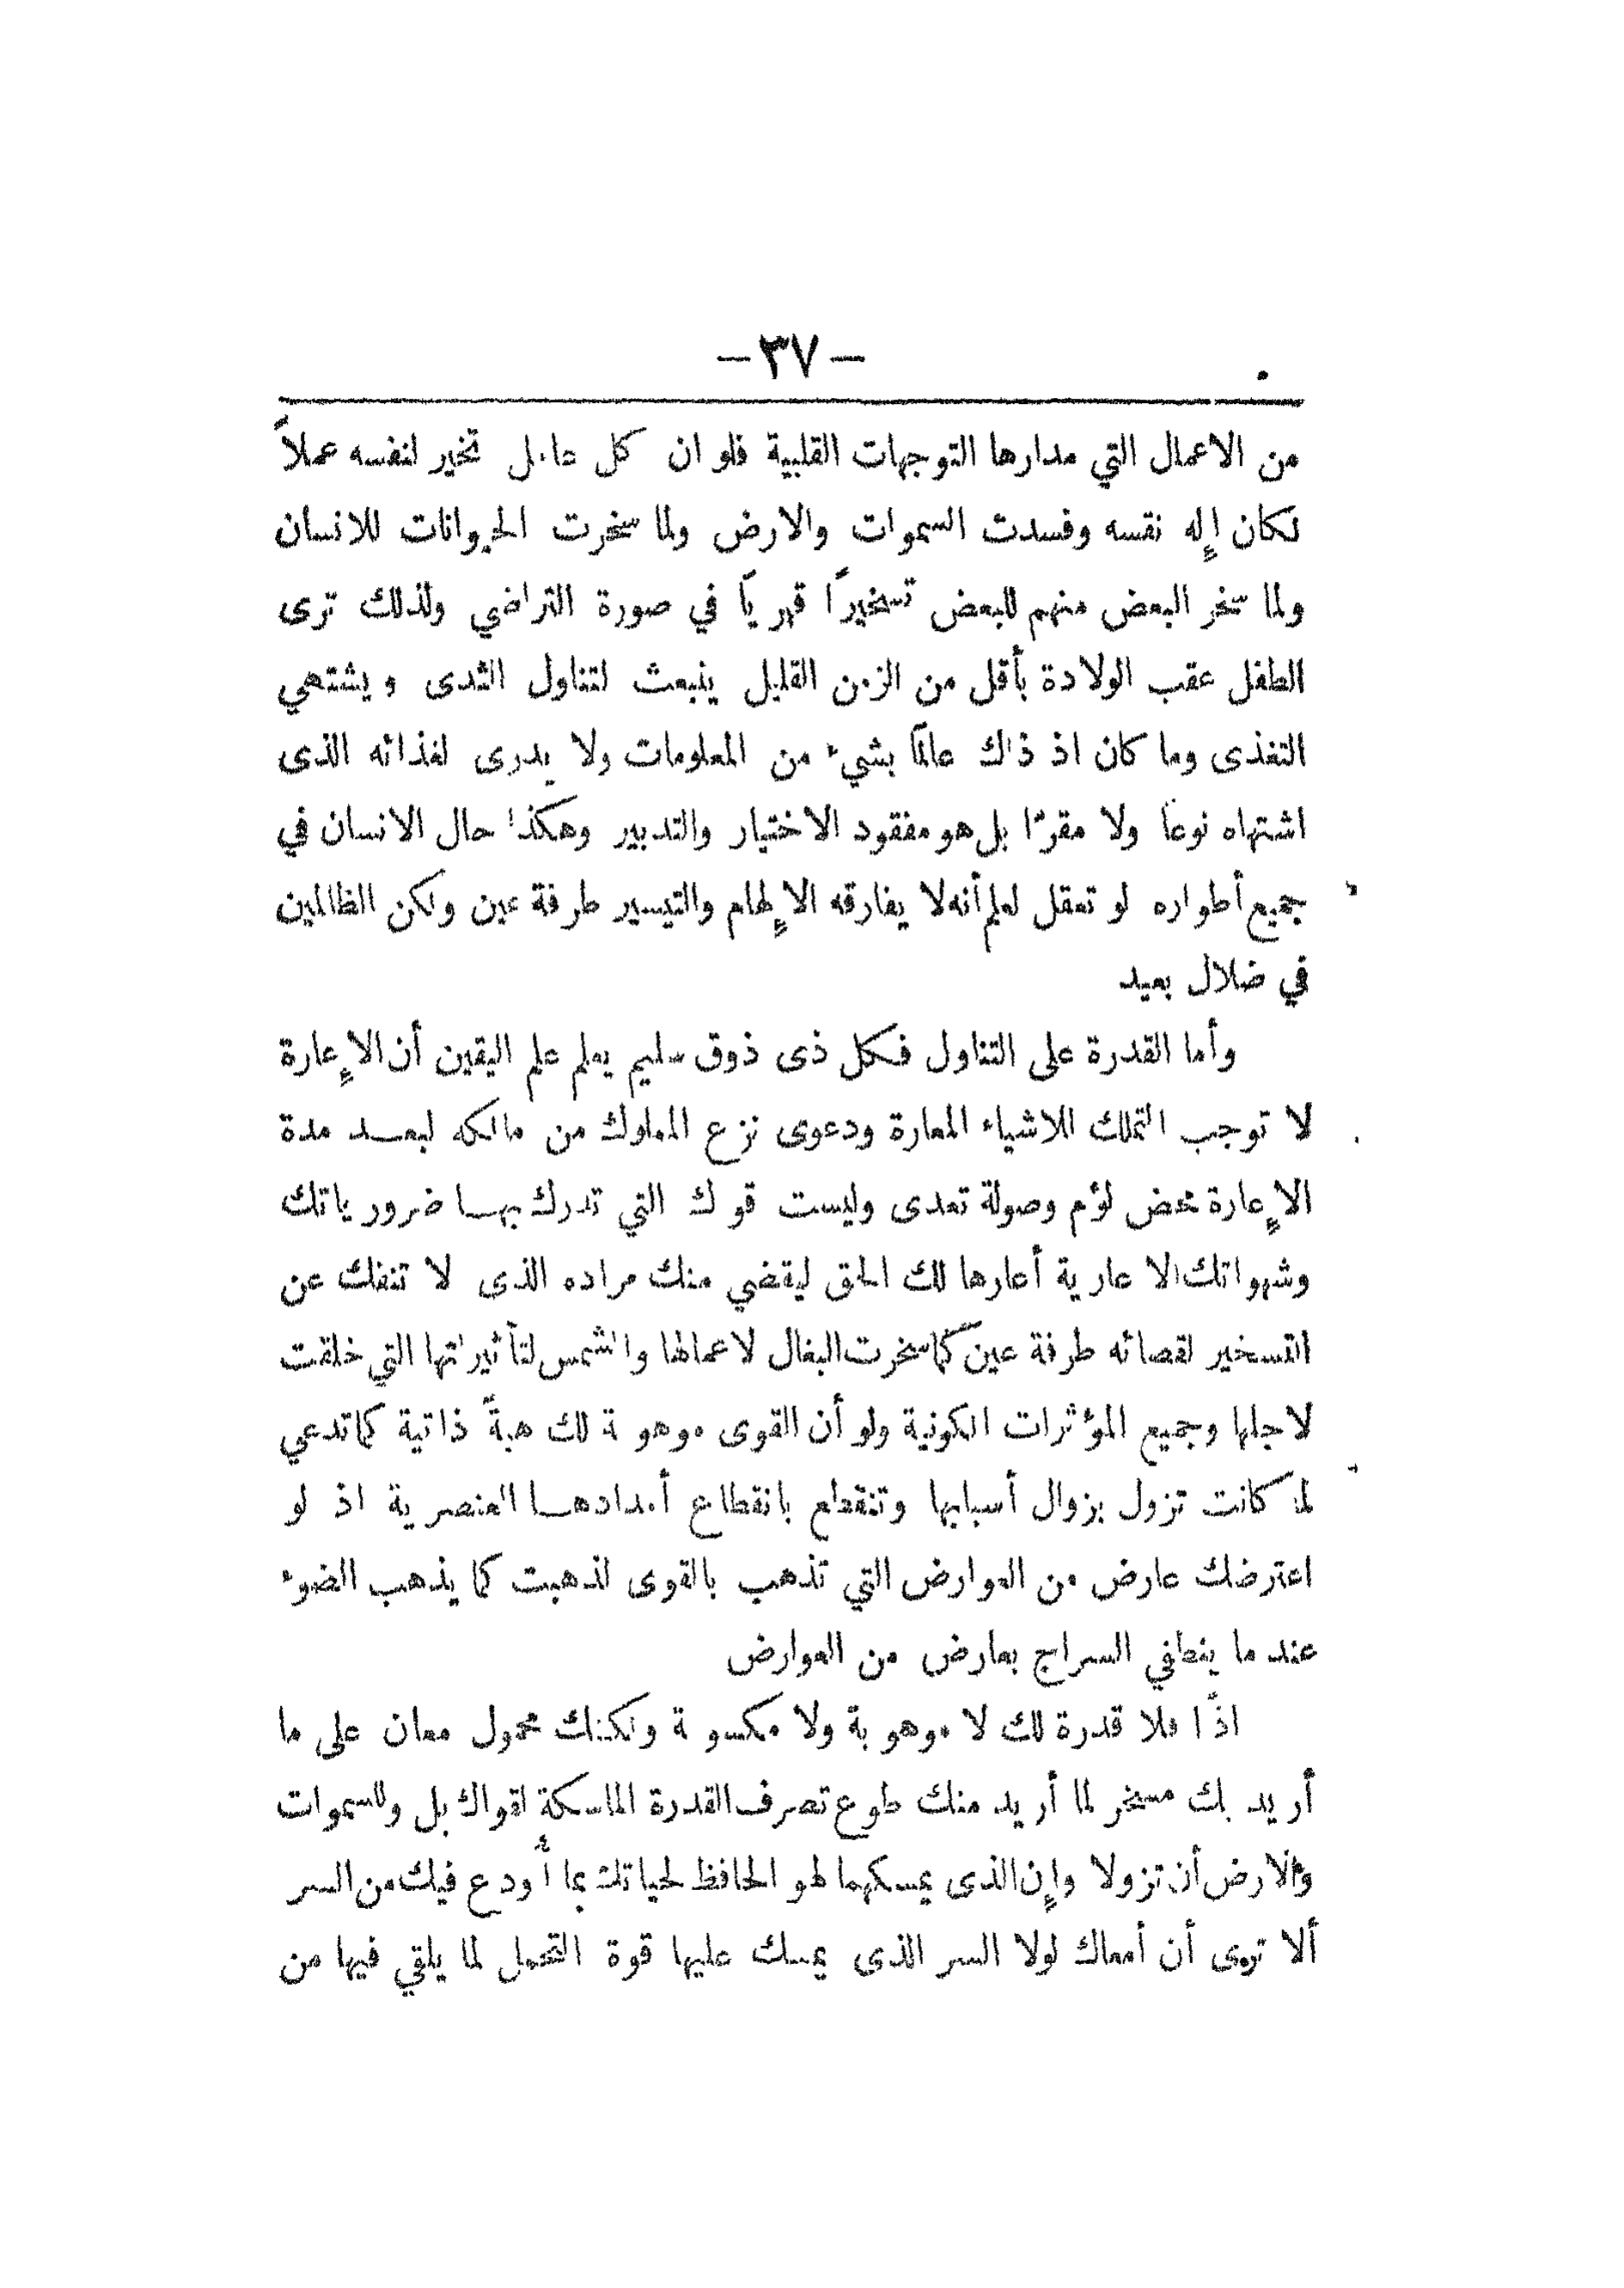 — ٣٧ —
من الاعمال التي مدارها التوجهات القلبية فلو ان كل عامل تخير لنفسه عملاً
لكان إله نفسه وفسدت السموات والارض ولما سخرت الحيوانات للانسان
ولما سخر البعض منهم للبعض تسخيراً قهرياً في صورة التراضي ولذلك ترى
الطفل عقب الولادة بأقل من الزمن القليل ينبعث لتناول الثدى ويشتهي
التغذى وما كان اذ ذاك عالماً بشيء من المعلومات ولا يدرى لغذائه الذى
اشتهاه نوعاً ولا مقرًا بل هو مفقود الاختيار والتدبير وهكذا حال الانسان في
جميع أطواره لو تعقل لعلم أنه لا يفارقه الإلهام والتيسير طرفة عين ولكن الظالمين
في ضلال بعيد
وأما القدرة على التناول فكل ذى ذوق سليم يعلم علم اليقين أن الإعارة
لا توجب التملك للاشياء المعارة ودعوى نزع المملوك من مالكه لبعد مدة
الإعارة محض لؤم وصولة تعدى وليست قوك التي تدرك بها ضرورياتك
وشهواتك الا عارية أعارها لك الحق ليقضي منك مراده الذى لا تنفك عن
التسخير لقضائه طرفة عين كما سخرت البغال لاعمالها والشمس لتأثيراتها التي خلقت
لاجلها وجميع المؤثرات الكونية ولو أن القوى موهوبة لك هبةً ذاتية كما تدعي
لما كانت تزول بزوال أسبابها وتنقطع بانقطاع أمدادها العنصرية اذ لو
اعترضك عارض من العوارض التي تذهب بالقوى لذهبت كما يذهب الضوء
عند ما ينطفي السراج بعارض من العوارض
اذًا فلا قدرة لك لا موهوبة ولا مكسوبة ولكنك محمول معان على ما
أريد بك مسخر لما أريد منك طوع تصرف القدرة الماسكة لقواك بل وللسموات
والارض أن تزولا وإن الذى يمسكهما لهو الحافظ لحياتك بما أودع فيك من السر
ألا ترى أن أمعاك لولا السر الذى يمسك عليها قوة التحمل لما يلقي فيها من